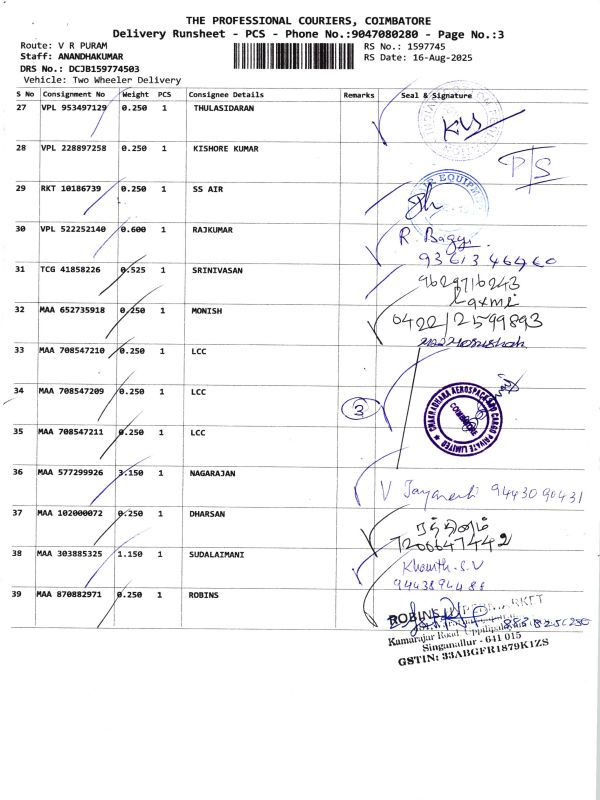 THE PROFESSIONAL COURIERS, COIMBATORE
Delivery Runsheet - PCS - Phone No.:9047080280 - Page No.:3
Route: V R PURAM
RS No.: 1597745
Staff: ANANDHAKUMAR
RS Date: 16-Aug-2025
DRS No.: DCJB159774503
Vehicle: Two Wheeler Delivery
S No Consignment No Weight PCS Consignee Details Remarks Seal & Signature
27 VPL 953497129 0.250 1 THULASIDARAN
28 VPL 228897258 0.250 1 KISHORE KUMAR
P/S
29 RKT 10186739 0.250 1 SS AIR
30 VPL 522252140 0.600 1 RAJKUMAR
R. Baggi
9361346460
31 TCG 41858226 0.525 1 SRINIVASAN
9629716243
Laxmi
32 MAA 652735918 0.250 1 MONISH
0422/2599893
33 MAA 708547210 0.250 1 LCC
34 MAA 708547209 0.250 1 LCC
3
CHAKRADHARA AEROSPACE AND CARGO PRIVATE LIMITED
COIMBATORE
35 MAA 708547211 0.250 1 LCC
36 MAA 577299926 3.150 1 NAGARAJAN
V Jayanthi 9443090431
37 MAA 102000072 0.250 1 DHARSAN
ரத்தினம்
7200647442
38 MAA 303885325 1.150 1 SUDALAIMANI
S.V
9443894488
39 MAA 870882971 0.250 1 ROBINS
ROBINS
Kamarajar Road
Singanallur - 641 015
GSTIN: 33ABGFR1879K1ZS